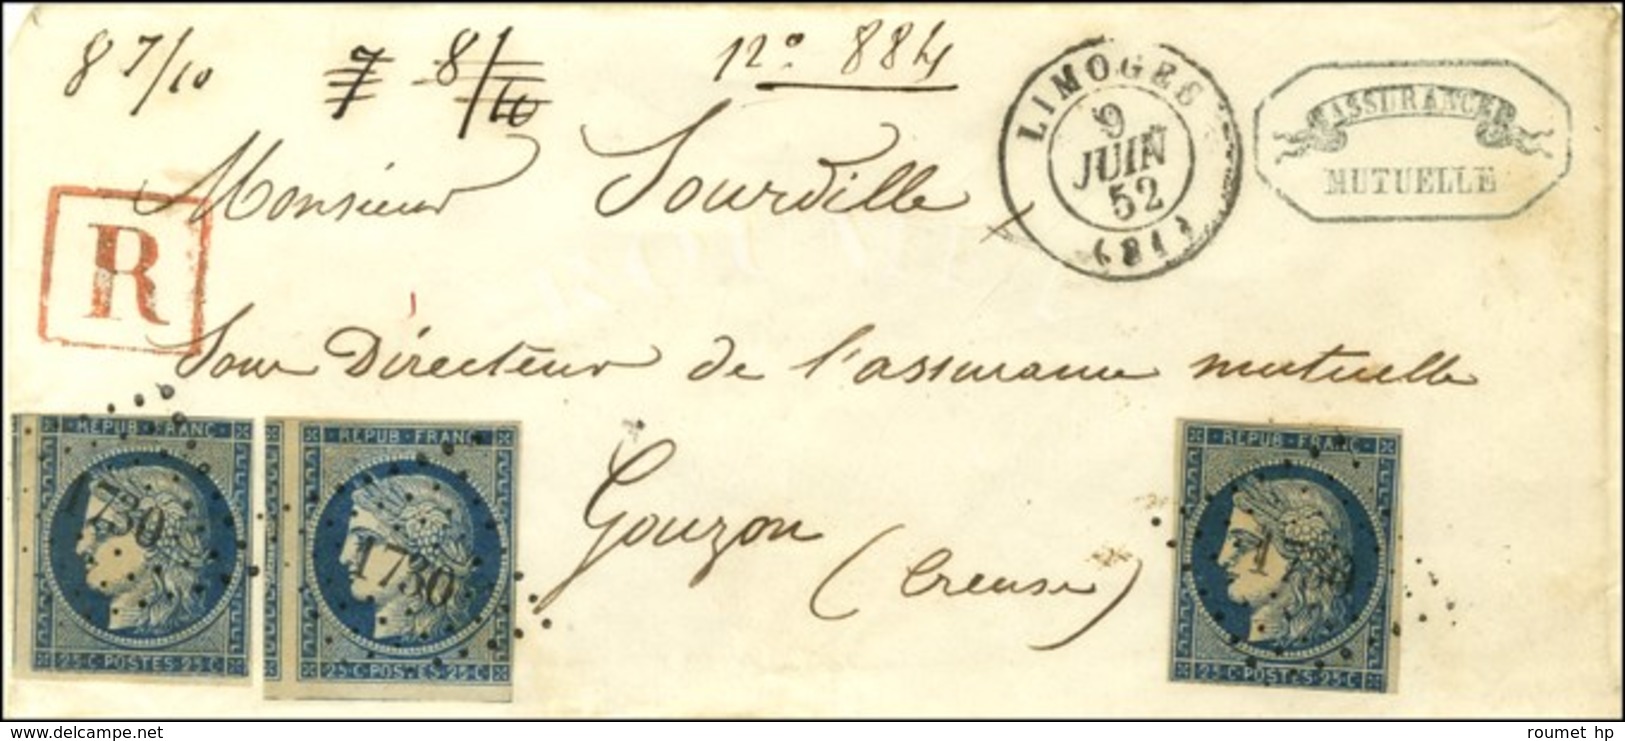 8 7/10 7 8/10 n° 884
LIMOGES
9
JUIN
52
(81)
ASSURANCE
MUTUELLE
Monsieur Sourdille
R
Sous Directeur de l'assurance mutuelle
Gouzon
(Creuse)
REPUB·FRANC·
1730
25·C·POSTES·25·C
REPUB·FRANC·
1730
25·C·POSTES·25·C
REPUB·FRANC·
1730
25·C·POSTES·25·C
www.delcampe.net
roumet hp